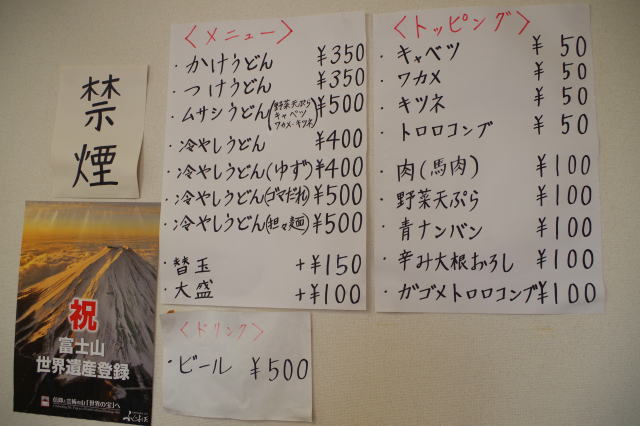 禁煙
祝
富士山
世界遺産登録
信仰と芸術の山「世界の宝」へ
＜メニュー＞
・かけうどん ¥350
・つけうどん ¥350
・ムサシうどん(野菜天ぷら キャベツ ワカメ・キツネ)¥500
・冷やしうどん ¥400
・冷やしうどん(ゆず)¥400
・冷やしうどん(ゴマだれ)¥500
・冷やしうどん(担々麺)¥500
・替玉 +¥150
・大盛 +¥100
＜ドリンク＞
・ビール ¥500
＜トッピング＞
・キャベツ ¥50
・ワカメ ¥50
・キツネ ¥50
・トロロコンブ ¥50
・肉(馬肉) ¥100
・野菜天ぷら ¥100
・青ナンバン ¥100
・辛み大根おろし ¥100
・ガゴメトロロコンブ¥100